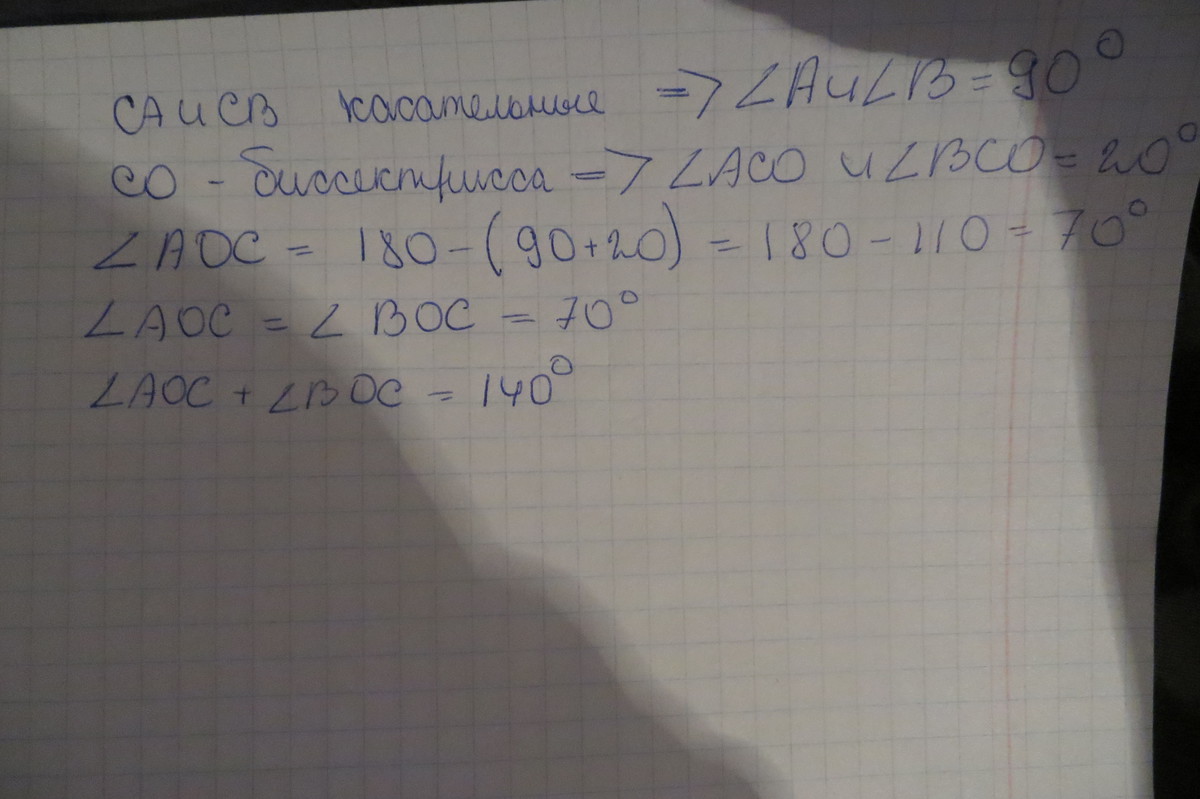 CA и CB касательные => ∠A и ∠B = 90°
CO - биссектрисса => ∠ACO и ∠BCO = 20°
∠AOC = 180 - (90+20) = 180 - 110 = 70°
∠AOC = ∠BOC = 70°
∠AOC + ∠BOC = 140°